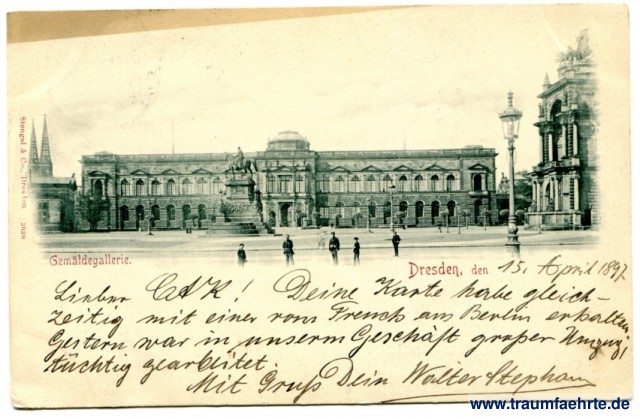 Stengel & Co., Dresden 5638
Gemäldegallerie.
Dresden, den 15. April 1897
Lieber CAK! Deine Karte habe gleich-
zeitig mit einer vom Frenck aus Berlin erhalten
Gestern war in unserm Geschäft großer Umzug!
tüchtig gearbeitet.
Mit Gruß Dein Walter Stephan
www.traumfaehrte.de